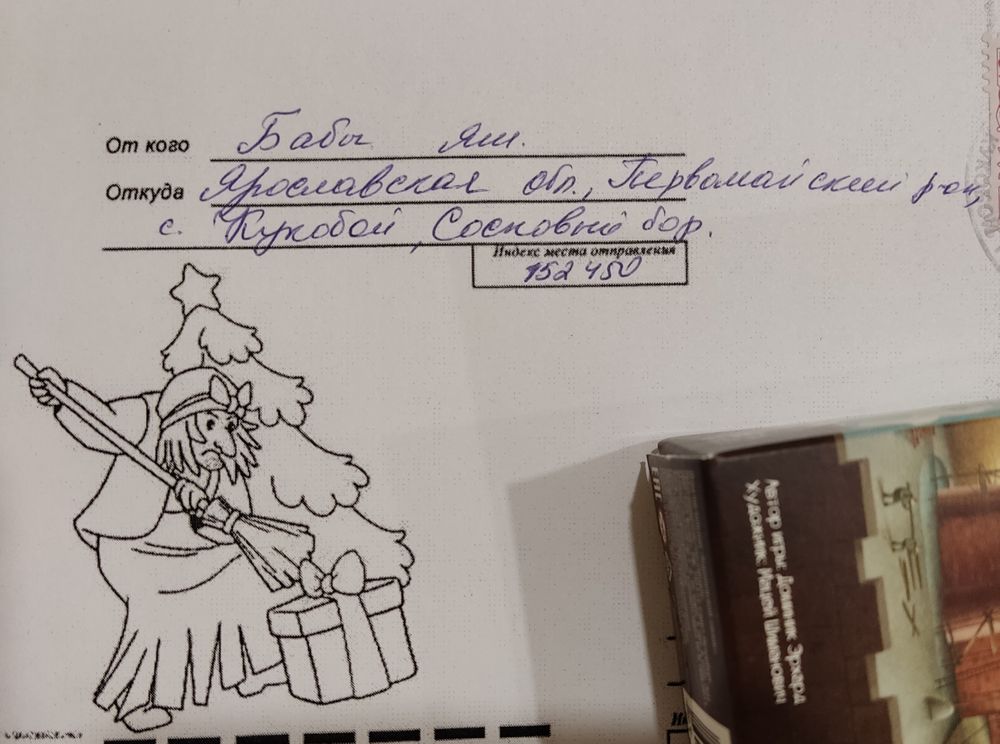 От кого Бабы Яги.
Откуда Ярославская обл., Первомайский р-он,
с. Кукобой, Сосновый бор.
Индекс места отправления
152450
Автор игры: Доминик Эрхард
Художник: